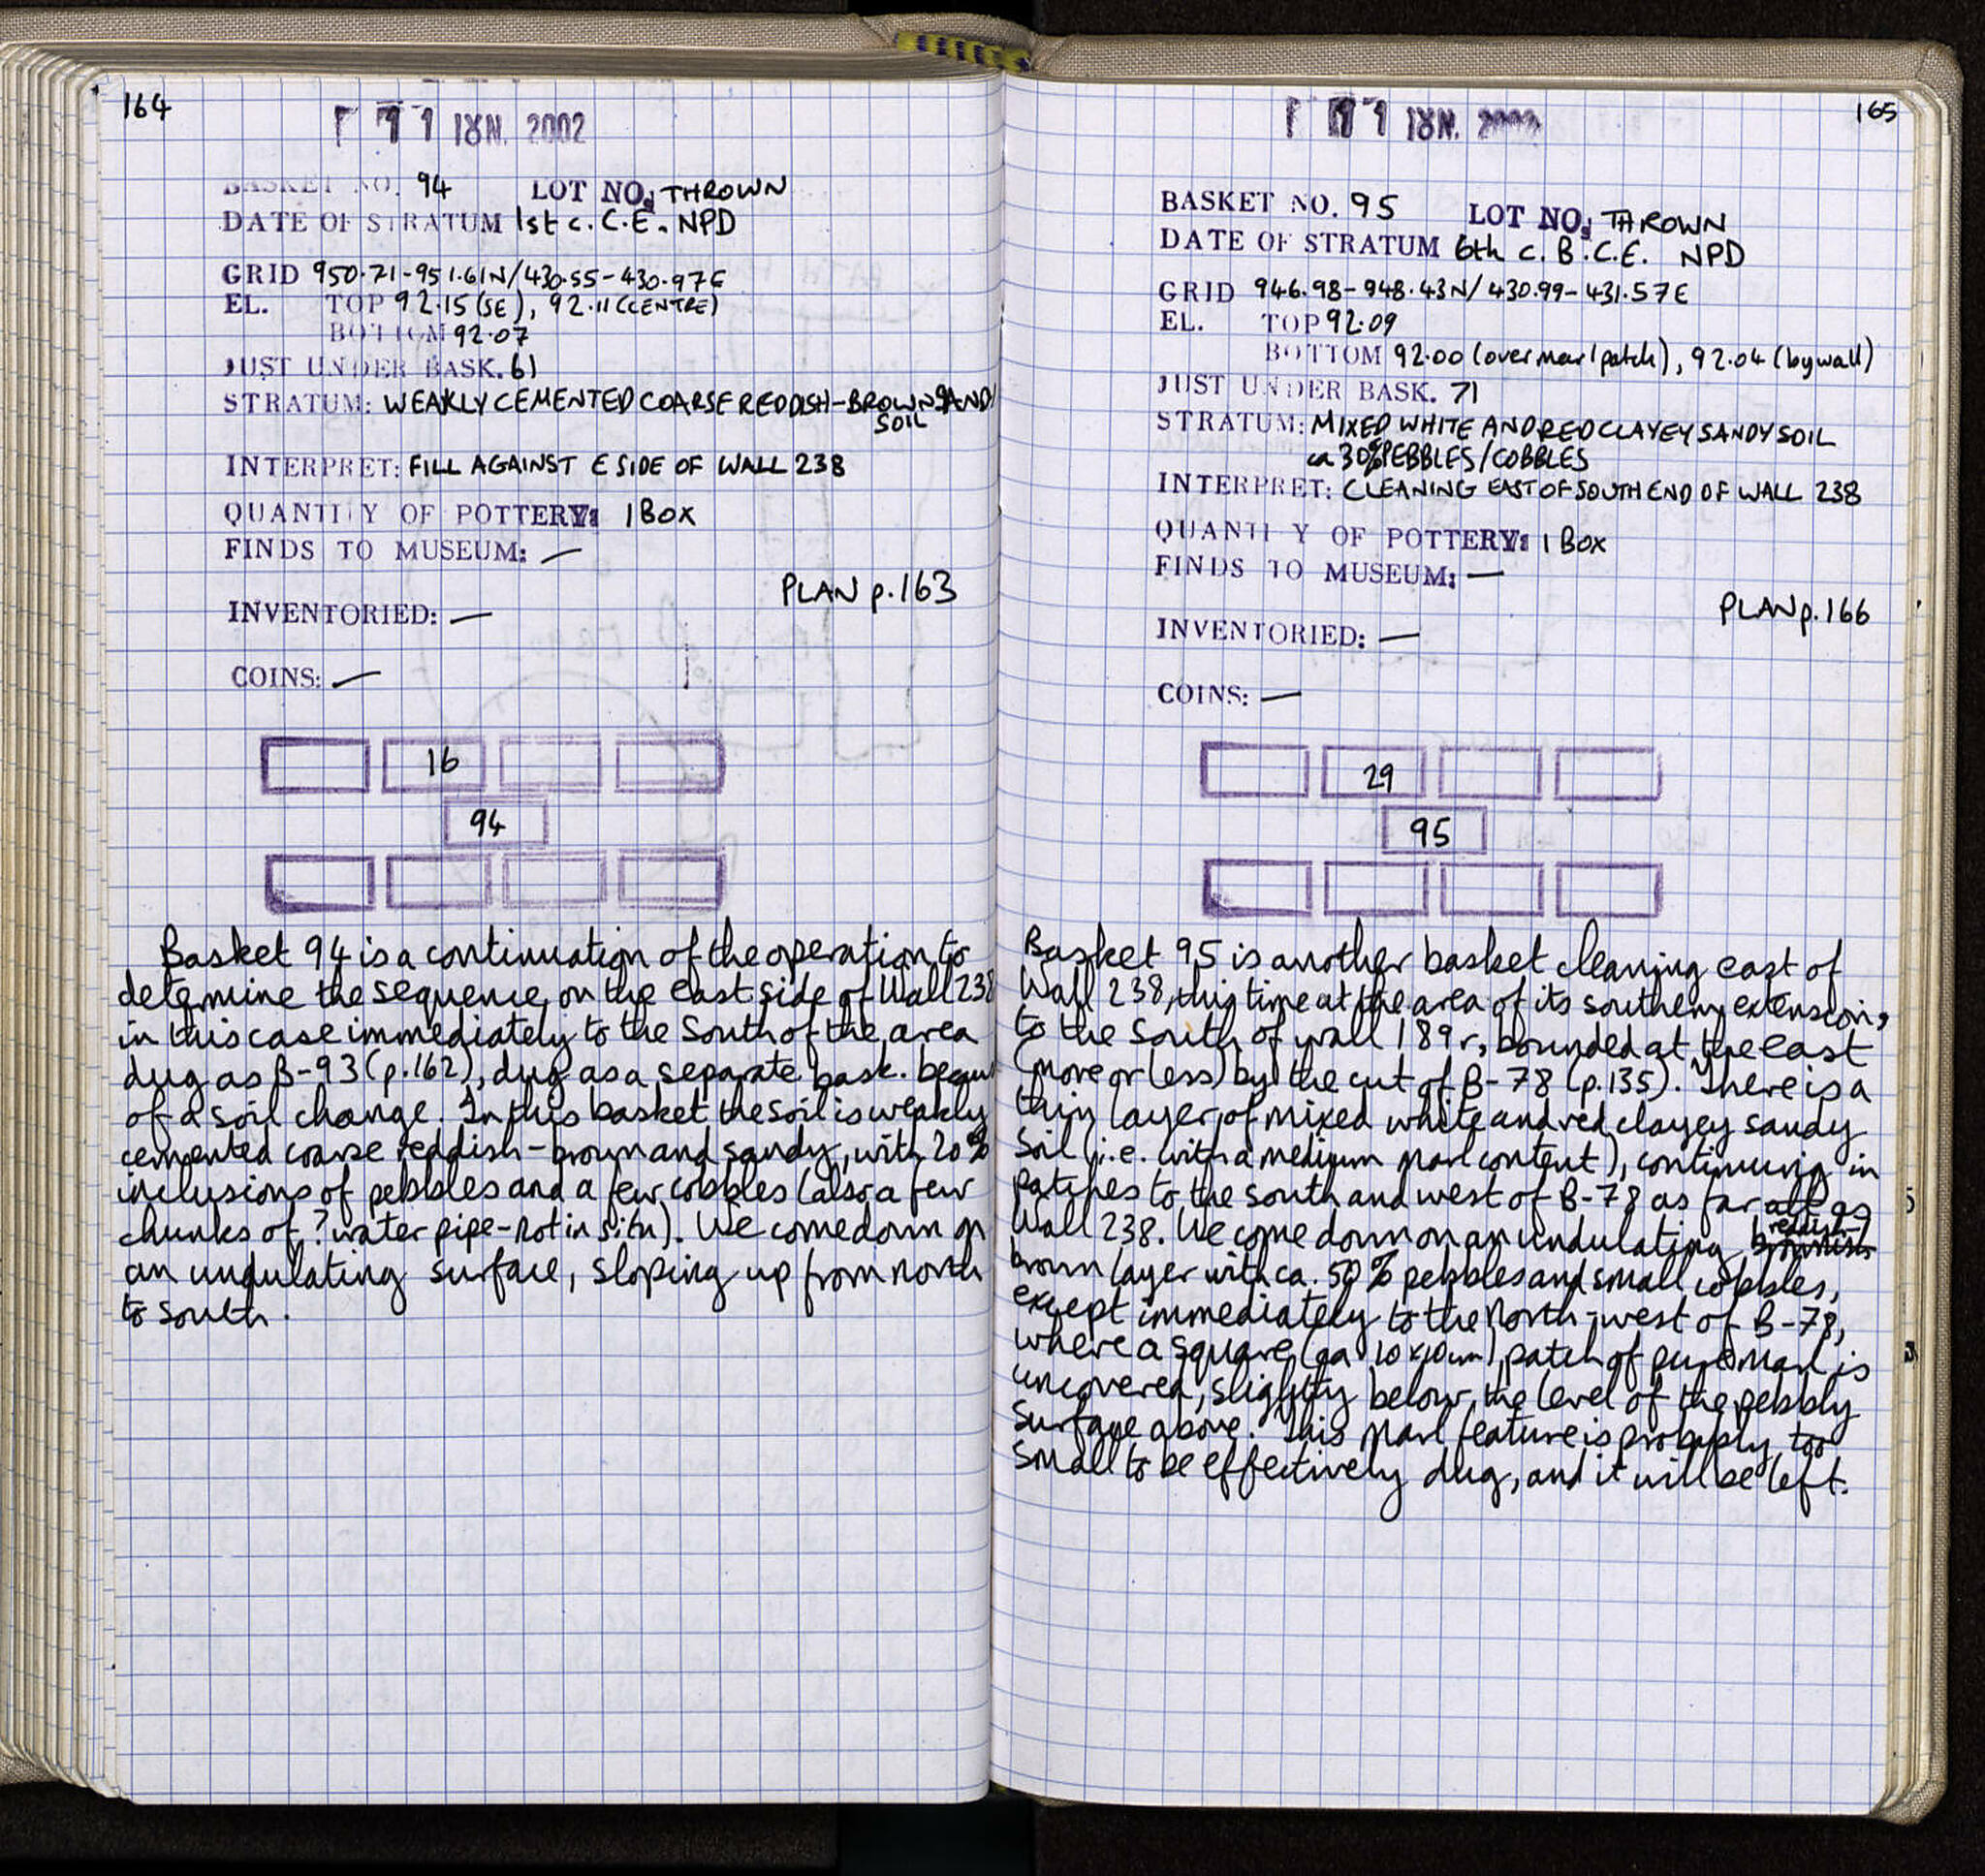 164
11 ΙΟΥΝ. 2002
BASKET NO. 94 LOT NO: THROWN
DATE OF STRATUM 1st c. C.E. NPD
GRID 950.71-951.61N/430.55-430.97E
EL. TOP 92.15 (SE), 92.11 (CENTRE)
BOTTOM 92.07
JUST UNDER BASK. 61
STRATUM: WEAKLY CEMENTED COARSE REDDISH-BROWN SANDY
SOIL
INTERPRET: FILL AGAINST E SIDE OF WALL 238
QUANTITY OF POTTERY: 1 BOX
FINDS TO MUSEUM: —
PLAN p.163
INVENTORIED: —
COINS: —
16
94
Basket 94 is a continuation of the operation to
determine the sequence on the east side of Wall 238
in this case immediately to the South of the area
dug as B-93 (p.162), dug as a separate bask. because
of a soil change. In this basket the soil is weakly
cemented coarse reddish-brown and sandy, with 20%
inclusions of pebbles and a few cobbles (also a few
chunks of ? water pipe - not in situ). We come down on
an undulating surface, sloping up from north
to south.
165
11 ΙΟΥΝ. 2002
BASKET NO. 95 LOT NO: THROWN
DATE OF STRATUM 6th c. B.C.E. NPD
GRID 946.98-948.43N/430.99-431.57E
EL. TOP 92.09
BOTTOM 92.00 (over marl patch), 92.04 (by wall)
JUST UNDER BASK. 71
STRATUM: MIXED WHITE AND RED CLAYEY SANDY SOIL
ca 30% PEBBLES/COBBLES
INTERPRET: CLEANING EAST OF SOUTH END OF WALL 238
QUANTITY OF POTTERY: 1 BOX
FINDS TO MUSEUM: —
PLAN p.166
INVENTORIED: —
COINS: —
29
95
Basket 95 is another basket cleaning east of
Wall 238, this time at the area of its southern extension,
to the South of wall 189r, bounded at the east
(more or less) by the cut of B-78 (p.135). There is a
thin layer of mixed white and red clayey sandy
soil (i.e. with a medium marl content), continuing in
patches to the south and west of B-78 as far as
Wall 238. We come down on an undulating reddish-
brown layer with ca. 50% pebbles and small cobbles,
except immediately to the north-west of B-78,
where a square (ca 10x10cm) patch of pure marl is
uncovered, slightly below the level of the pebbly
surface above. This marl feature is probably too
small to be effectively dug, and it will be left.